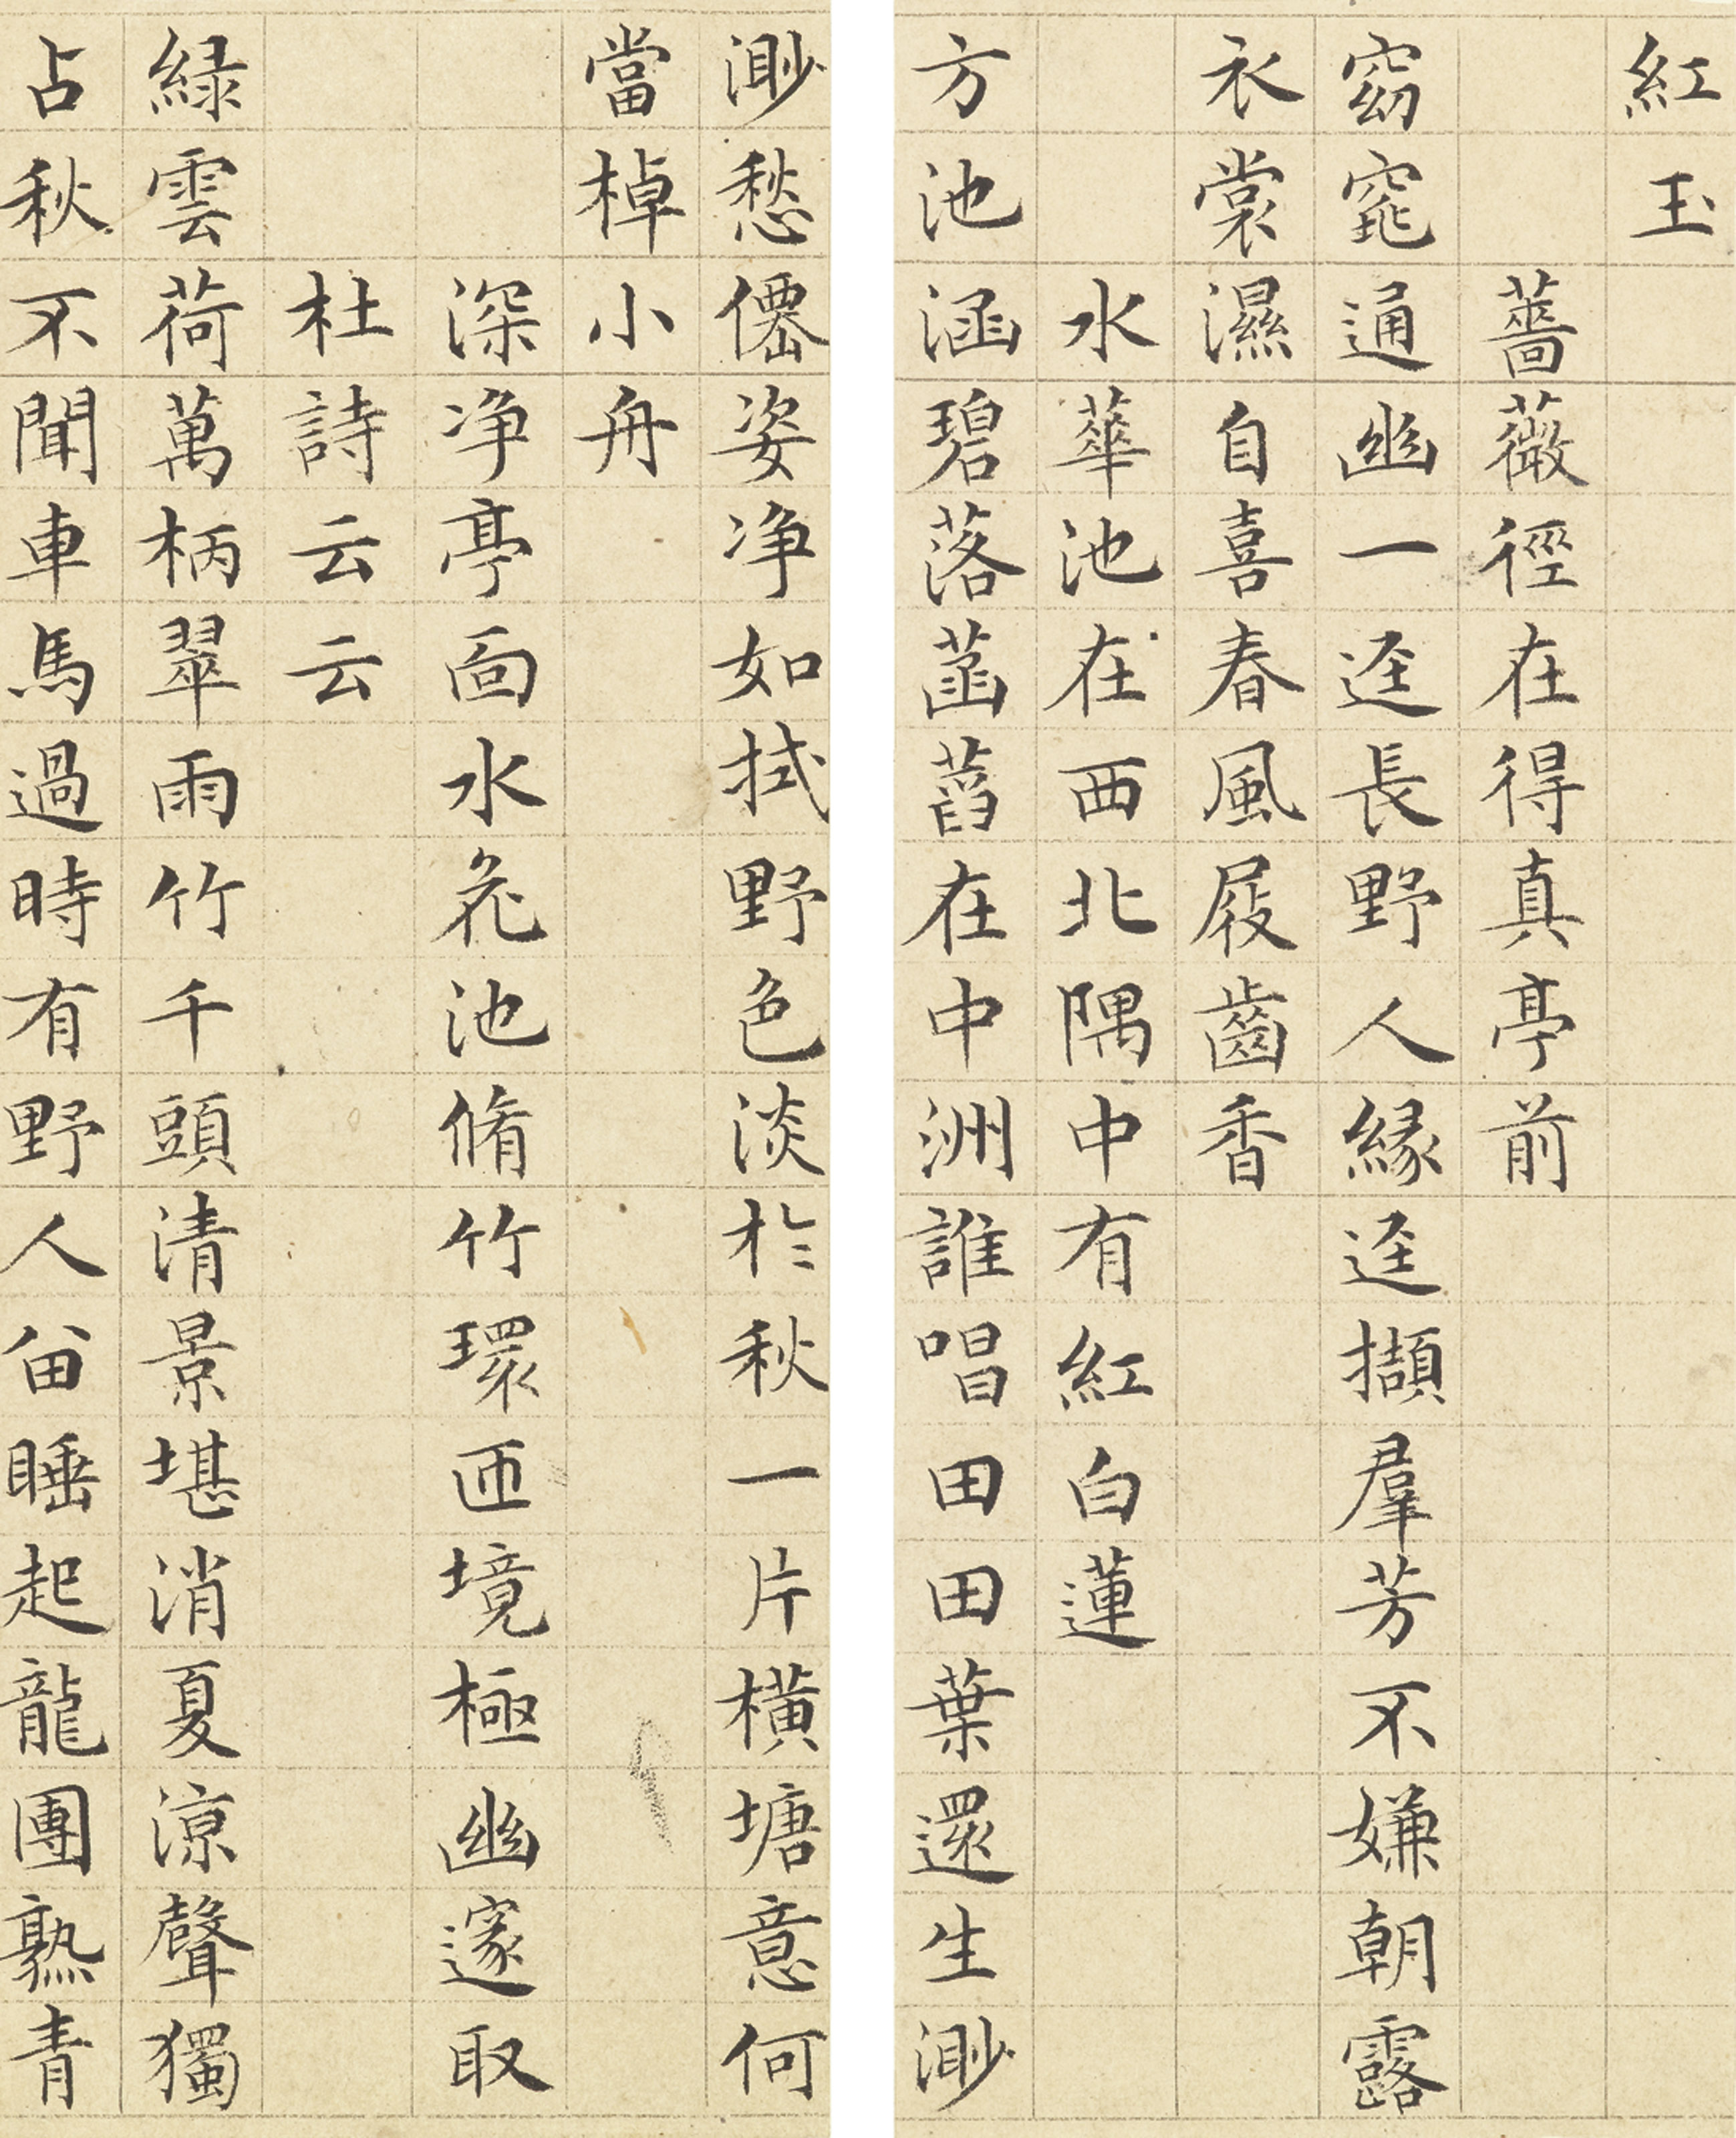 紅玉
薔薇徑在得真亭前
窈窕通幽一迳長野人緣迳擷羣芳不嫌朝露
衣裳濕自喜春風屐齒香
水華池在西北隅中有紅白蓮
方池涵碧落菡萏在中洲誰唱田田葉還生渺
渺愁僊姿净如拭野色淡於秋一片橫塘意何
當棹小舟
深净亭面水花池脩竹環匝境極幽邃取
杜詩云云
緑雲荷萬柄翠雨竹千頭清景堪消夏涼聲獨
占秋不聞車馬過時有野人留睡起龍團熟青